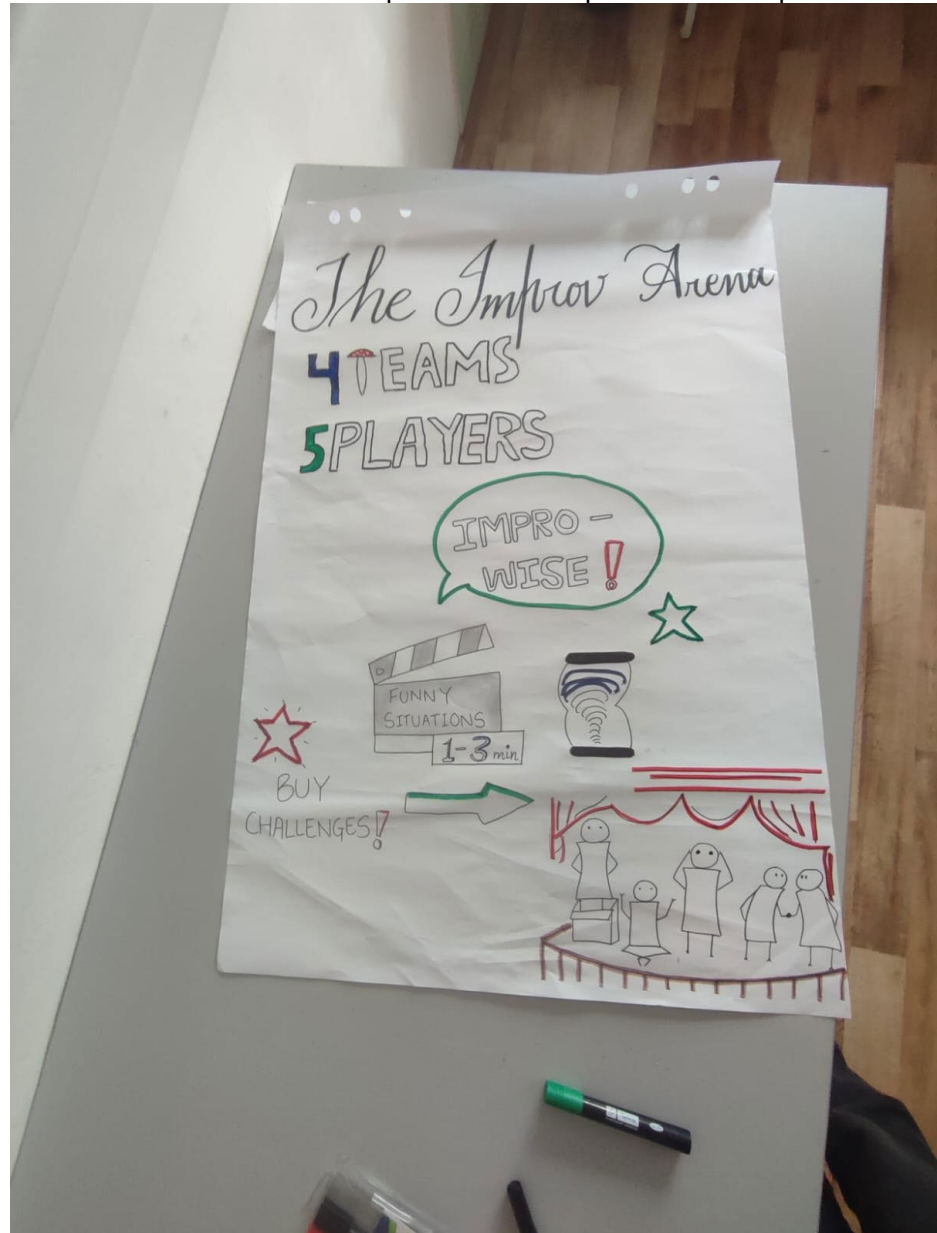 The Improv Arena
4 TEAMS
5 PLAYERS
IMPRO -
WISE!
FUNNY
SITUATIONS
1-3 min
BUY
CHALLENGES!